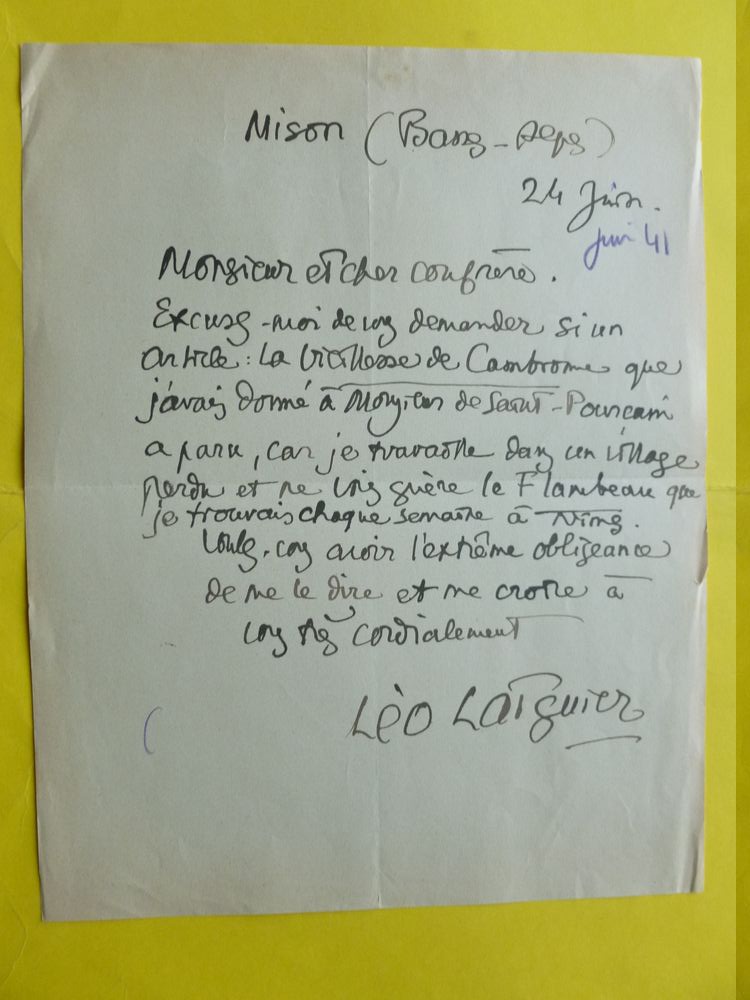 Mison (Basses-Alpes)
24 Juin.
juin 41
Monsieur et cher confrère.
Excusez-moi de vous demander si un
article : La Vieillesse de Cambronne que
j'avais donné à Monsieur de Saint-Pourçain
a paru, car je travaille dans un village
perdu et ne vois guère le Flambeau que
je trouvais chaque semaine à Nîmes.
Voulez-vous avoir l'extrême obligeance
de me le dire et me croire à
vous très cordialement
Léo Larguier